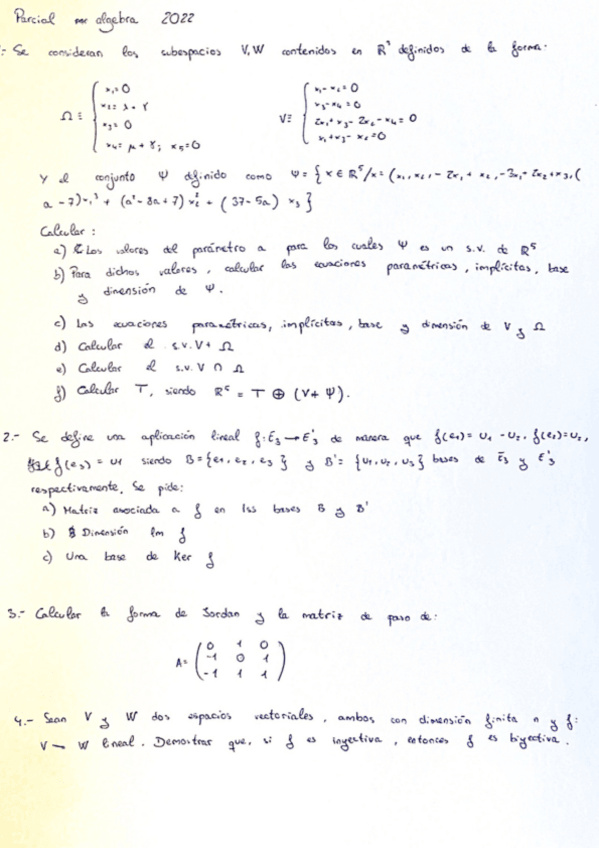 Parcial algebra 2022
1.- Se consideran los subespacios V, W contenidos en R⁵ definidos de la forma:
Ω ≡ { x₁ = 0
x₂ = λ - γ
x₃ = 0
x₄ = μ + γ; x₅ = 0
V ≡ { x₁ - x₂ = 0
x₃ - x₄ = 0
2x₁ + x₃ - 2x₂ - x₄ = 0
x₁ + x₃ - x₂ = 0
Y el conjunto Ψ definido como Ψ = { x ∈ R⁵ / x = (x₁, x₂, - 2x₁ + x₂, -3x₁ - 2x₂ + x₃, (
a - 7) x₁³ + (a² - 8a + 7) x₂² + (37 - 5a) x₃ }
Calcular:
a) Los valores del parámetro a para los cuales Ψ es un s.v. de R⁵
b) Para dichos valores, calcular las ecuaciones paramétricas, implícitas, base
y dimensión de Ψ.
c) Las ecuaciones paramétricas, implícitas, base y dimensión de V y Ω
d) Calcular el s.v. V + Ω
e) Calcular el s.v. V ∩ Ω
f) Calcular T, siendo R⁵ = T ⊕ (V + Ψ).
2.- Se define una aplicación lineal f: E₃ → E'₃ de manera que f(e₁) = u₁ - u₂, f(e₂) = u₂,
f(e₃) = u₁ siendo B = {e₁, e₂, e₃} y B' = {u₁, u₂, u₃} bases de E₃ y E'₃
respectivamente. Se pide:
a) Matriz asociada a f en las bases B y B'
b) Dimensión Im f
c) Una base de Ker f
3.- Calcular la forma de Jordan y la matriz de paso de:
A = ( 0 1 0
-1 0 1
-1 1 1 )
4.- Sean V y W dos espacios vectoriales, ambos con dimensión finita n y f:
V → W lineal. Demostrar que, si f es inyectiva, entonces f es biyectiva.